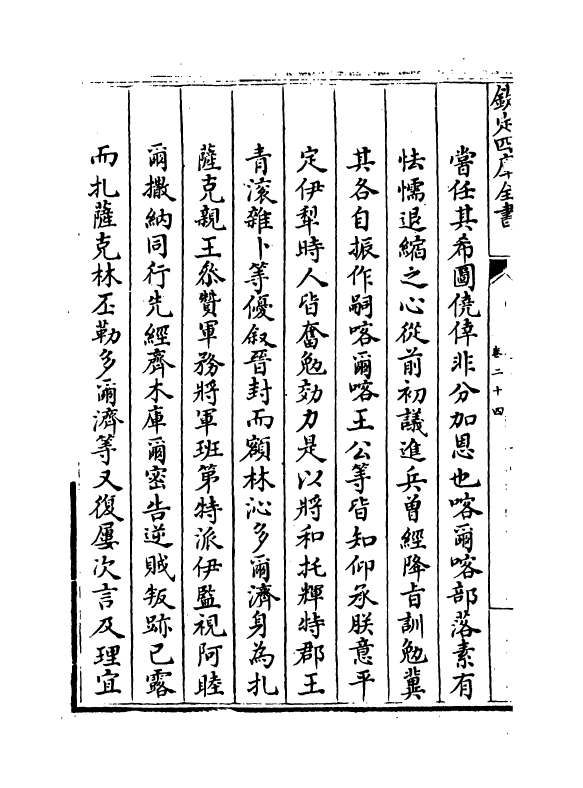 欽定四庫全書
卷二十四
當任其希圖僥倖非分加恩也喀爾喀部落素有
怯懦退縮之心從前初議進兵曾經降旨訓勉冀
其各自振作嗣喀爾喀王公等皆知仰承朕意平
定伊犁時人皆奮勉効力是以將和托輝特郡王
青滚雜卜等優叙晉封而額林沁多爾濟身為扎
薩克親王叅贊軍務將軍班第特派伊監視阿睦
爾撒納同行先經齊木庫爾密告逆賊叛跡已露
而扎薩克林丕勒多爾濟等又復屢次言及理宜